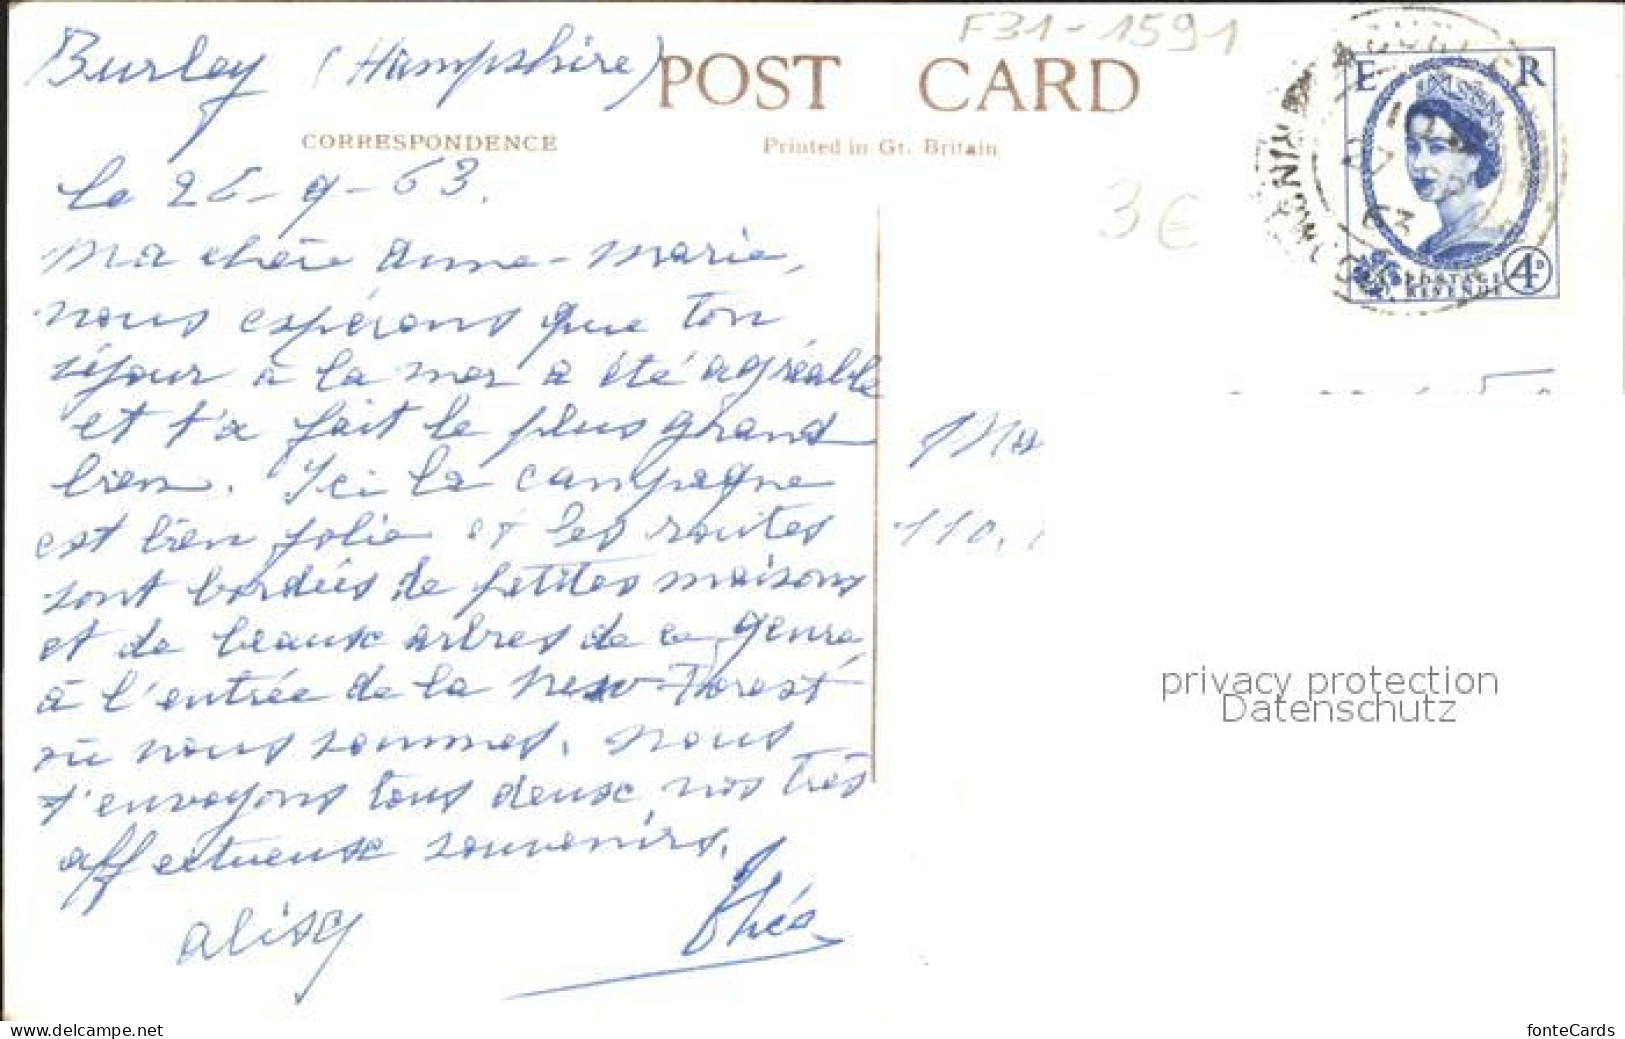 F31-1591
Burley (Hampshire)
POST CARD
CORRESPONDENCE
Printed in Gt. Britain
E R
POSTAGE
REVENUE
4D
3€
le 26-9-63.
Ma chère Anne-Marie,
nous espérons que ton
séjour à la mer a été agréable
et t'a fait le plus grand
bien. Ici la campagne
est bien jolie et les routes
sont bordées de petites maisons
et de beaux arbres de ce genre,
à l'entrée de la New-Forest
où nous sommes. Nous
t'envoyons tous deux, nos très
affectueux souvenirs.
Théo
110,
privacy protection
Datenschutz
www.delcampe.net
fonteCards